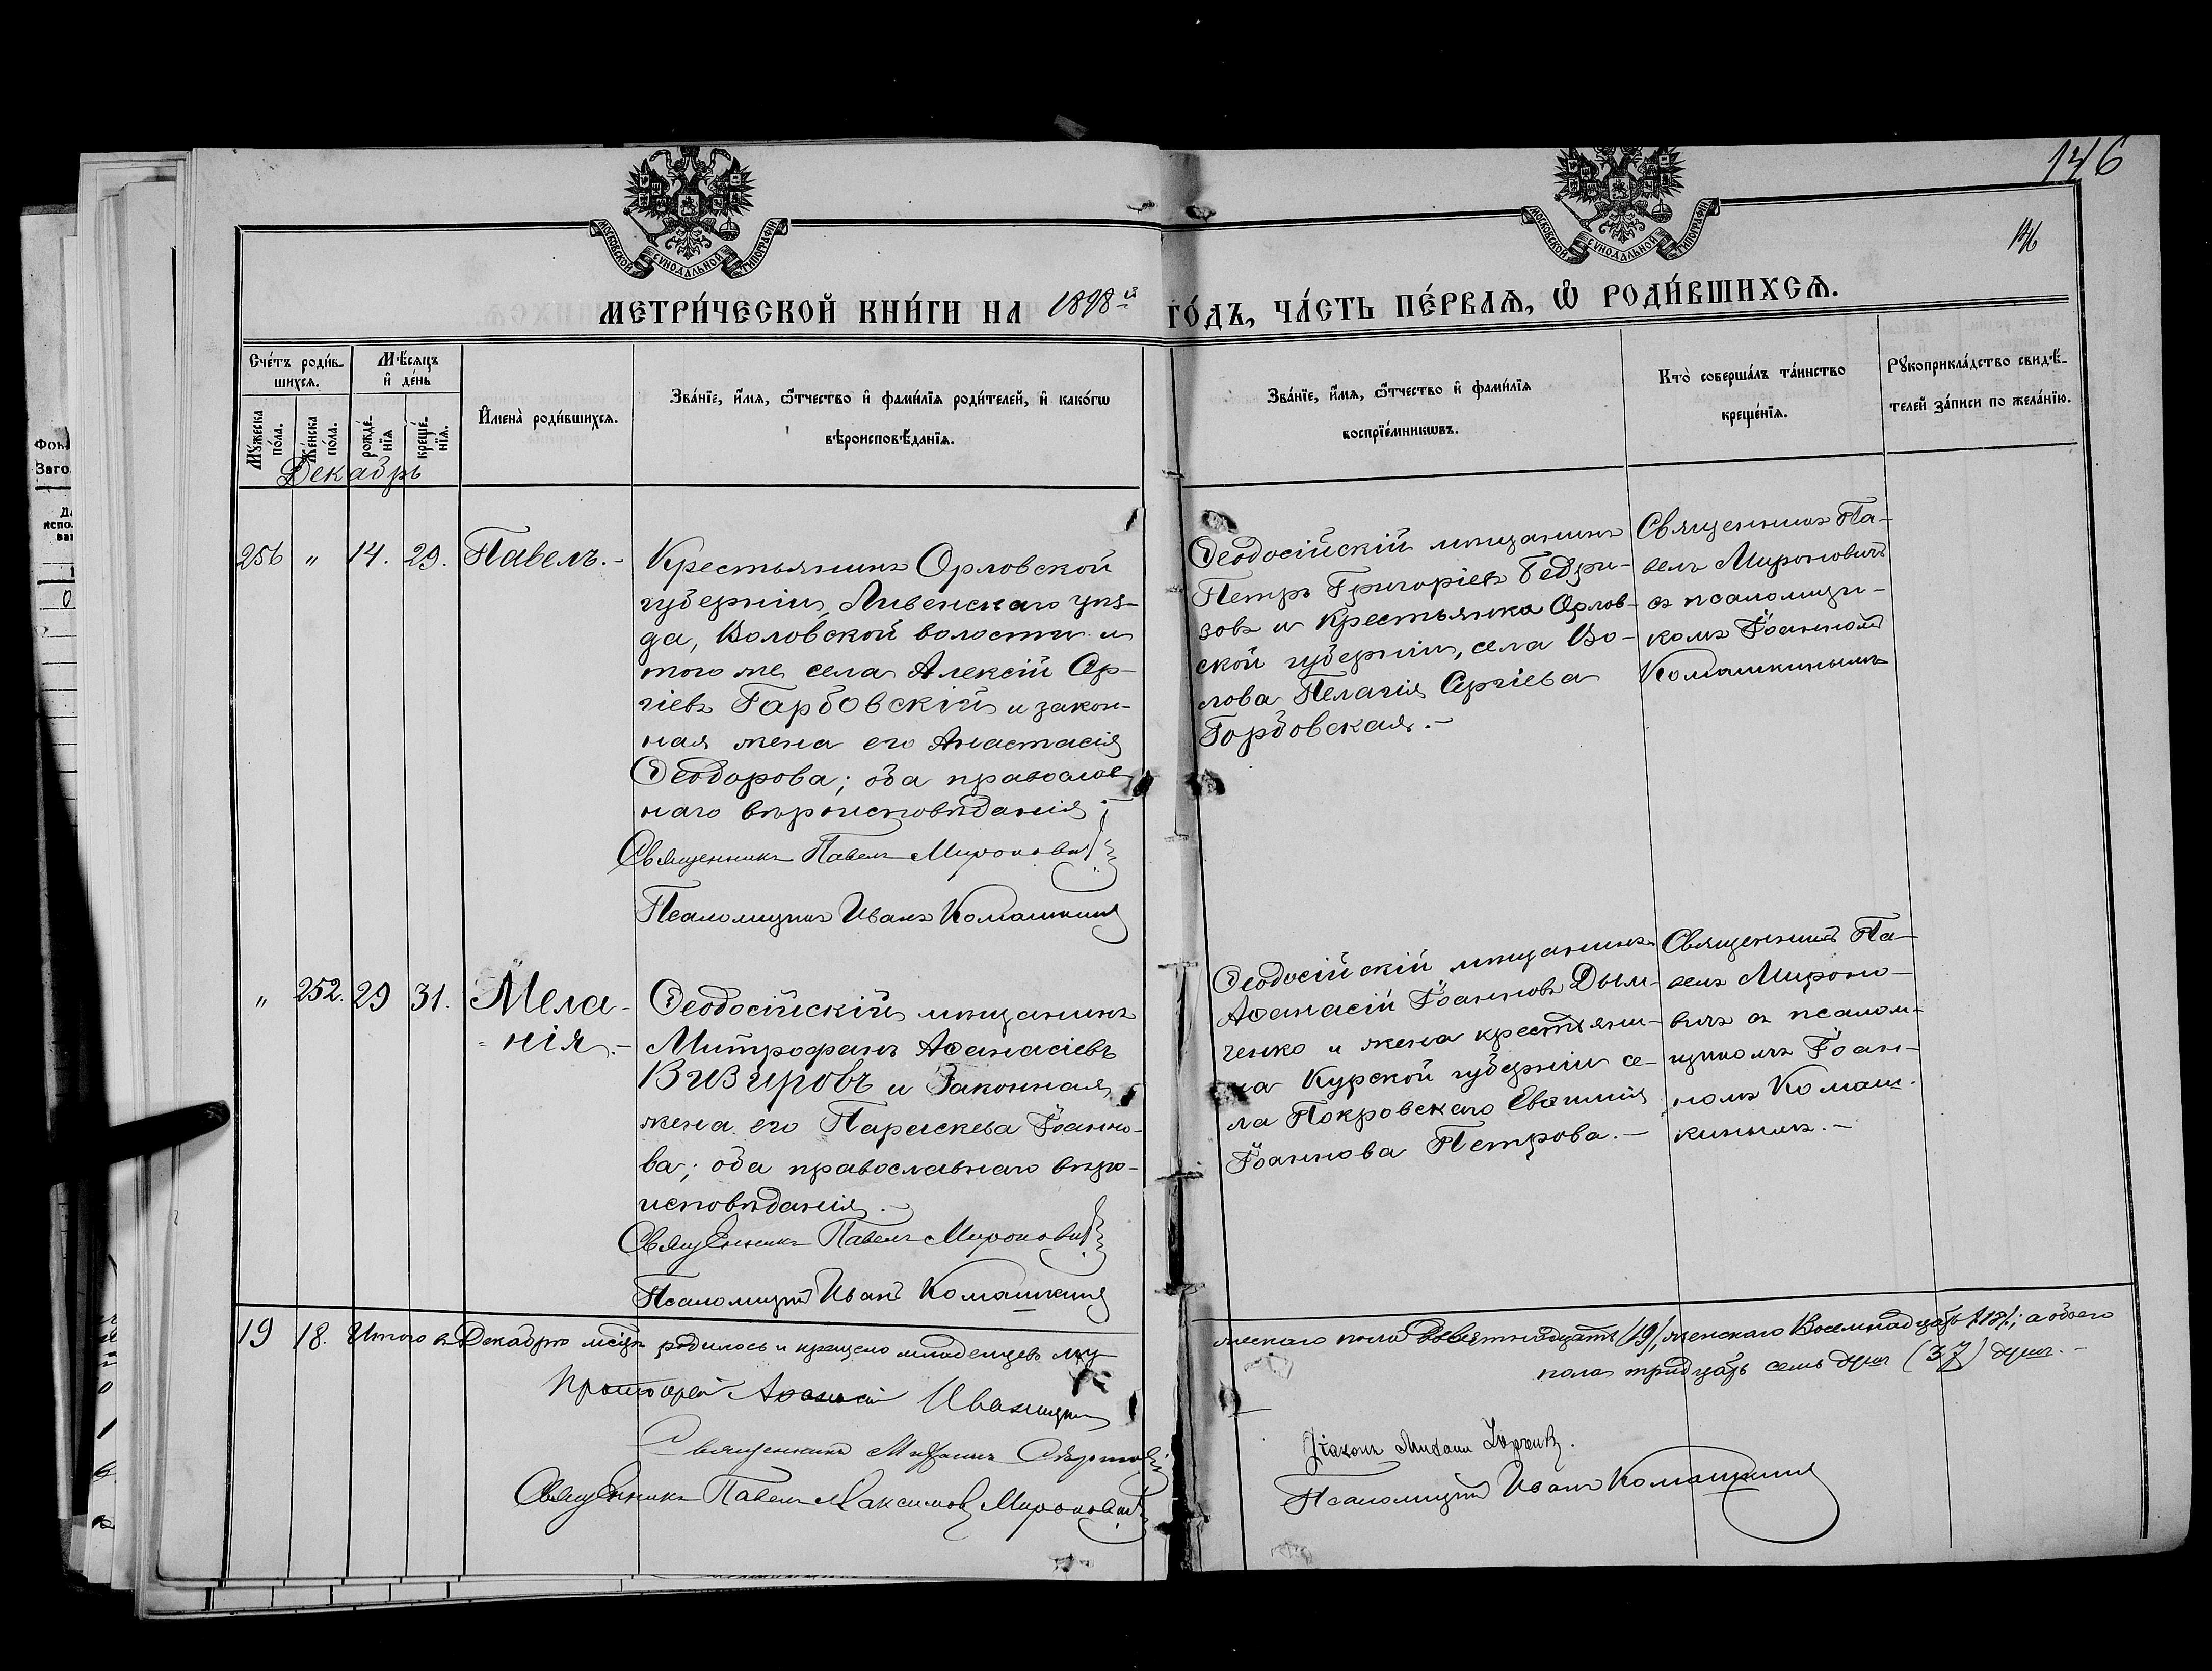 146
146
МОСКОВСКОЙ СѴНОДАЛЬНОЙ ТИПОГРАФІИ
МОСКОВСКОЙ СѴНОДАЛЬНОЙ ТИПОГРАФІИ
МЕТРИ́ЧЕСКОЙ КНИ́ГИ НА 1898й ГО́ДЪ, ЧА́СТЬ ПЕ́РВАѦ, Ѽ РОДИ́ВШИХСѦ.
Сче́тъ роди́в-
шихся.
Мꙋ́жеска по́ла.
Же́нска по́ла.
Мѣ́сяцъ
и҆ де́нь
рожде́-нїя
креще́-нїя.
И҆мена̀ роди́вшихся.
Зва́нїе, и҆́мя, ѻ҆́тчество и҆ фами́лїя роди́телей, и҆ како́гѡ
вѣроисповѣ́данїя.
Зва́нїе, и҆́мя, ѻ҆́тчество и҆ фами́лїя
воспрїе́мникѡвъ.
Кто̀ соверша́лъ та́инство
креще́нїя.
Рꙋкоприкла́дство свидѣ́-
телей за́писи по жела́нїю.
Декабрь
256 " 14. 29. Павелъ.-
Крестьянинъ Орловской
губерніи, Ливенскаго уѣз-
да, Воловской волости и
того же села Алексій Сер-
гіевъ Гарбовскій и закон-
ная жена его Анастасія
Ѳеодорова; оба православ-
наго вѣроисповѣданія.-
Священникъ Павелъ Мироновичъ
Псаломщикъ Иванъ Комашкинъ
Ѳеодосійскій мѣщанинъ
Петръ Григоріевъ Бедри-
зовъ и крестьянка Орлов-
ской губерніи, села Во-
лова Пелагія Сергіева
Горбовская.-
Священникъ Па-
велъ Мироновичъ
съ псаломщи-
комъ Іоанномъ
Комашкинымъ
" 252. 29 31. Мела-
нія.-
Ѳеодосійскій мѣщанинъ
Митрофанъ Аѳанасіевъ
Визировъ и законная
жена его Параскева Іоанно-
ва; оба православнаго вѣро-
исповѣданія.-
Священникъ Павелъ Мироновичъ
Псаломщикъ Иванъ Комашкинъ
Ѳеодосійскій мѣщанинъ
Аѳанасій Іоанновъ Дым-
ченко и жена крестьяни-
на Курской губерніи се-
ла Покровскаго Евѳимія
Іоаннова Петрова.-
Священникъ Па-
велъ Мироно-
вичъ съ псалом-
щикомъ Іоан-
номъ Комаш-
кинымъ.-
19 18. Итого въ Декабрѣ мѣсяцѣ родилось и крещено младенцевъ му-
жескаго пола девятнадцать (19), женскаго Восемнадцать (18); а обоего
пола тридцать семь душъ (37) душъ.-
Протоіерей Аѳанасій Иваницкій
Священникъ Михаилъ
Священникъ Павелъ Максимовъ Мироновичъ
Діаконъ Михаилъ
Псаломщикъ Иванъ Комашкинъ